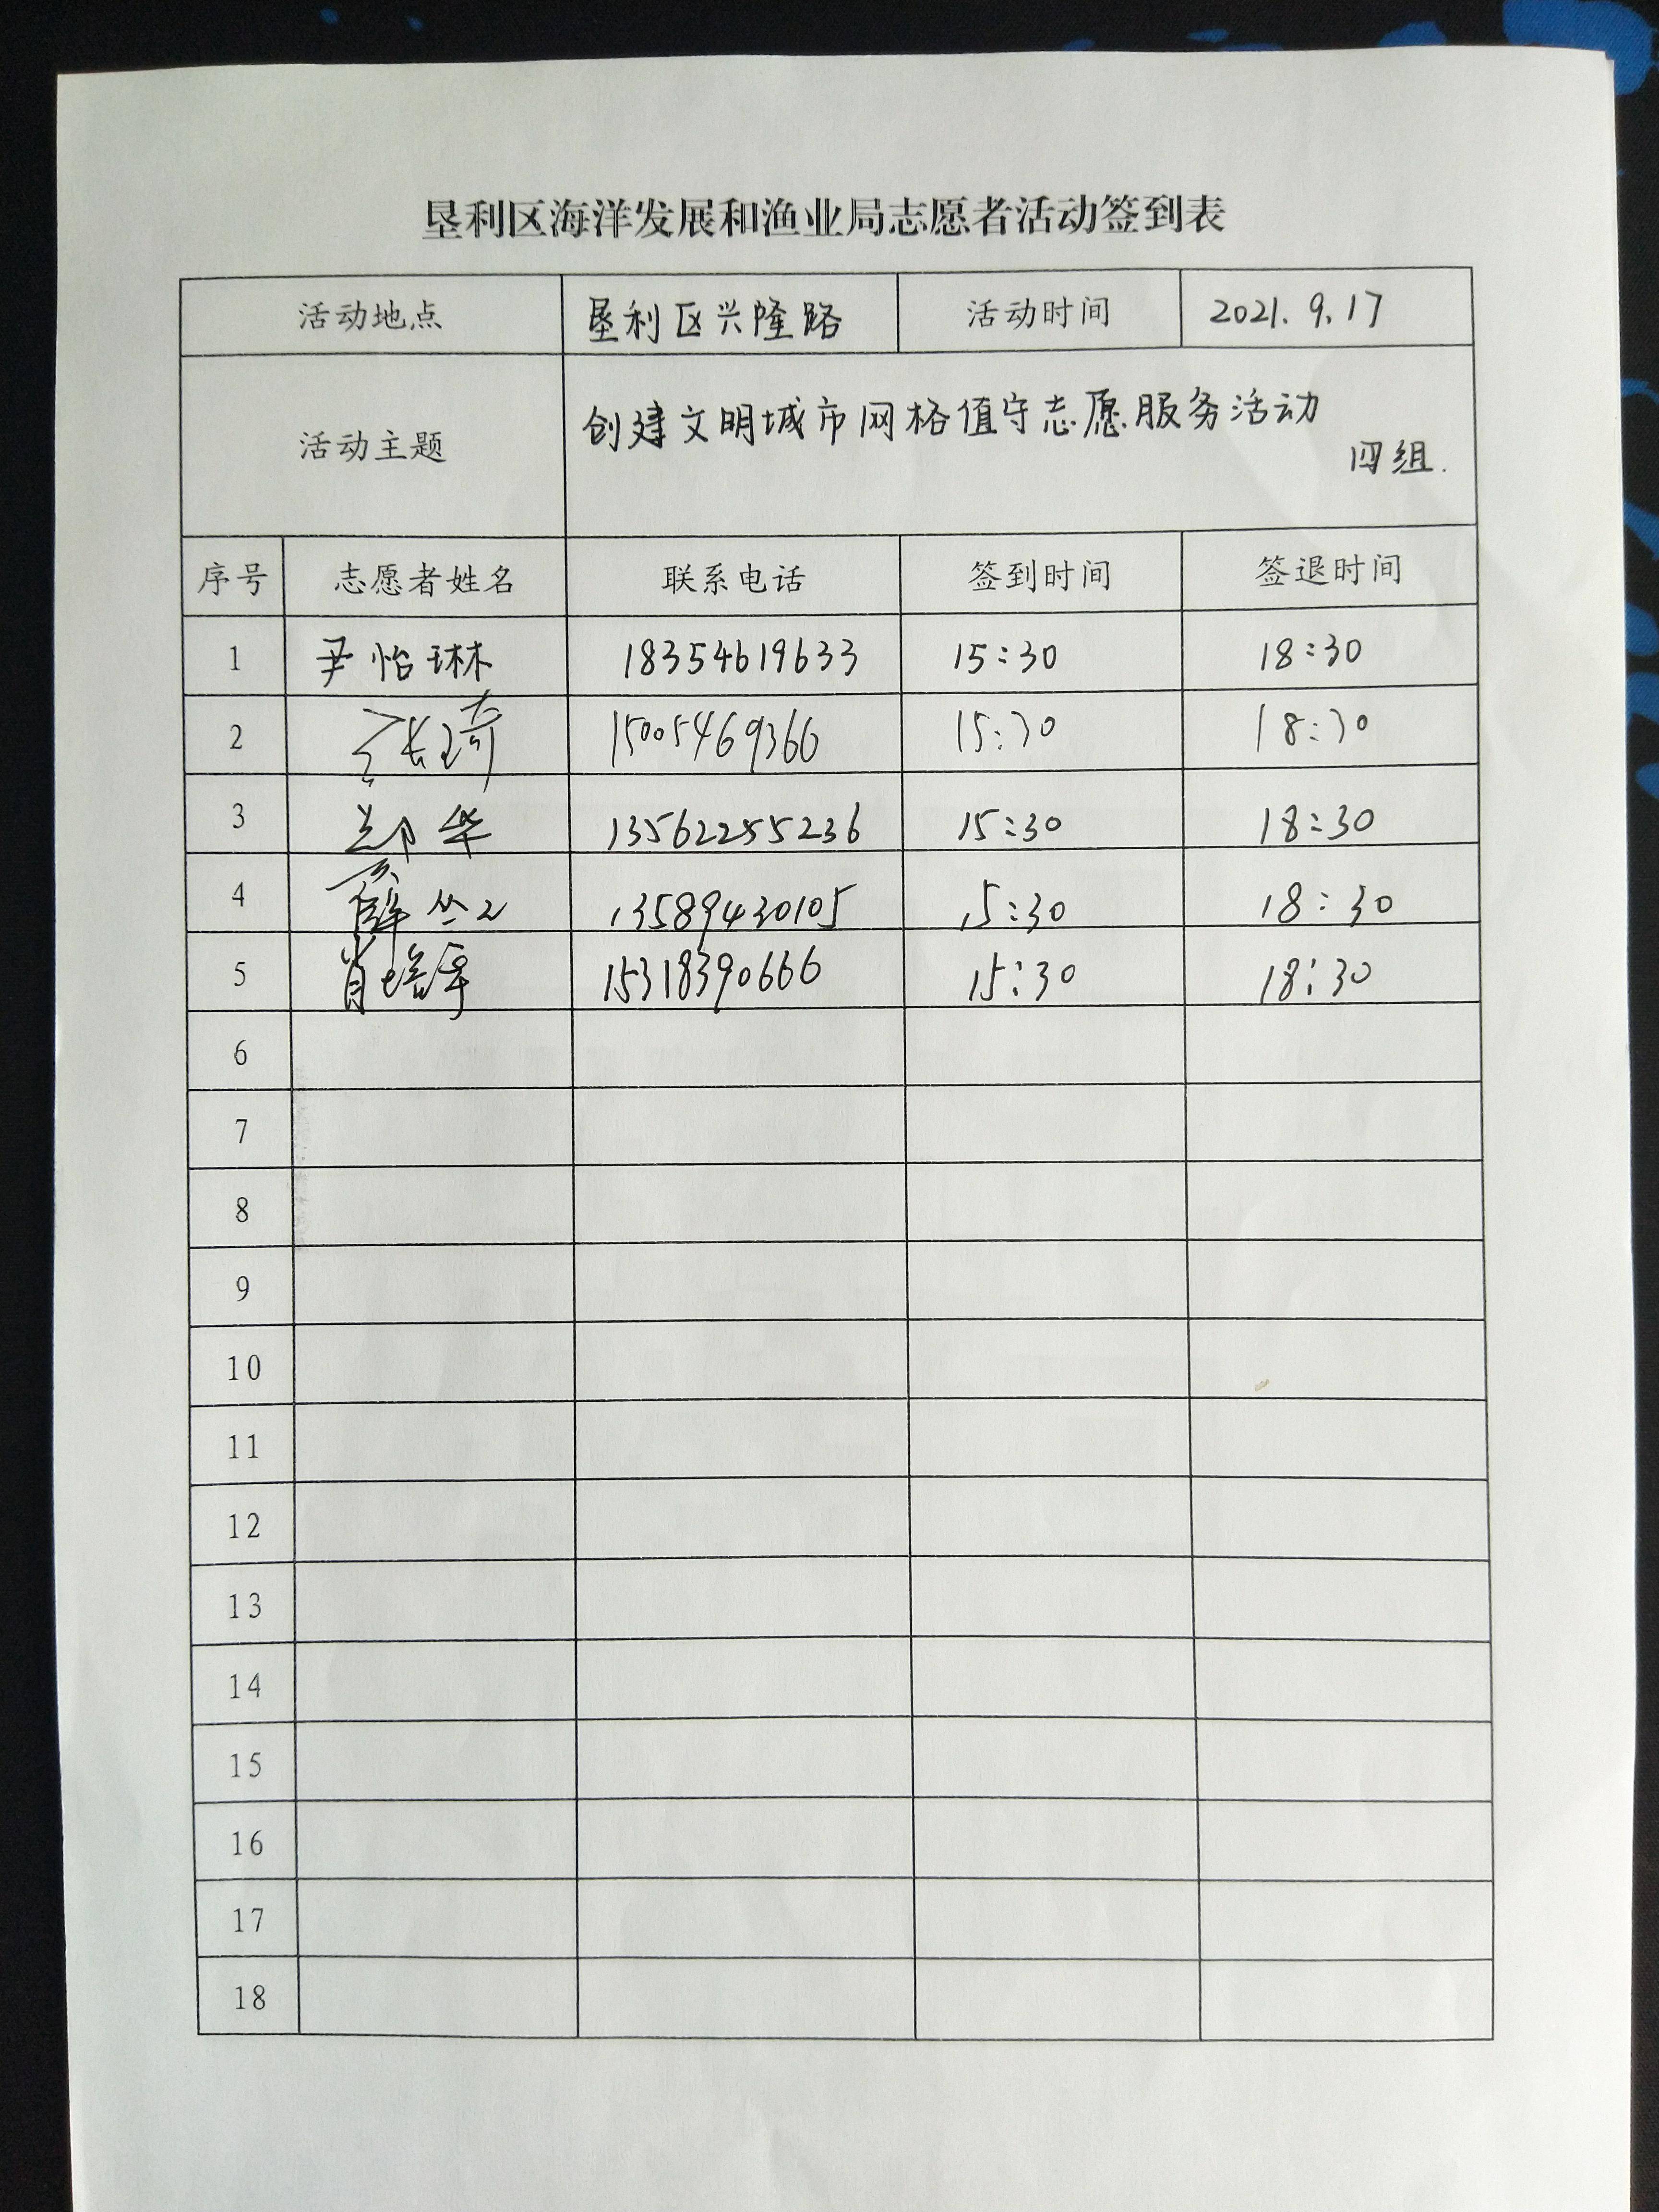 垦利区海洋发展和渔业局志愿者活动签到表
活动地点 垦利区兴隆路 活动时间 2021.9.17
活动主题 创建文明城市网格值守志愿服务活动
四组.
序号 志愿者姓名 联系电话 签到时间 签退时间
1 尹怡琳 18354619633 15:30 18:30
2 张琦 15005469366 15:30 18:30
3 华 13562255236 15:30 18:30
4 薛 13589430105 15:30 18:30
5 肖 15318390666 15:30 18:30
6
7
8
9
10
11
12
13
14
15
16
17
18